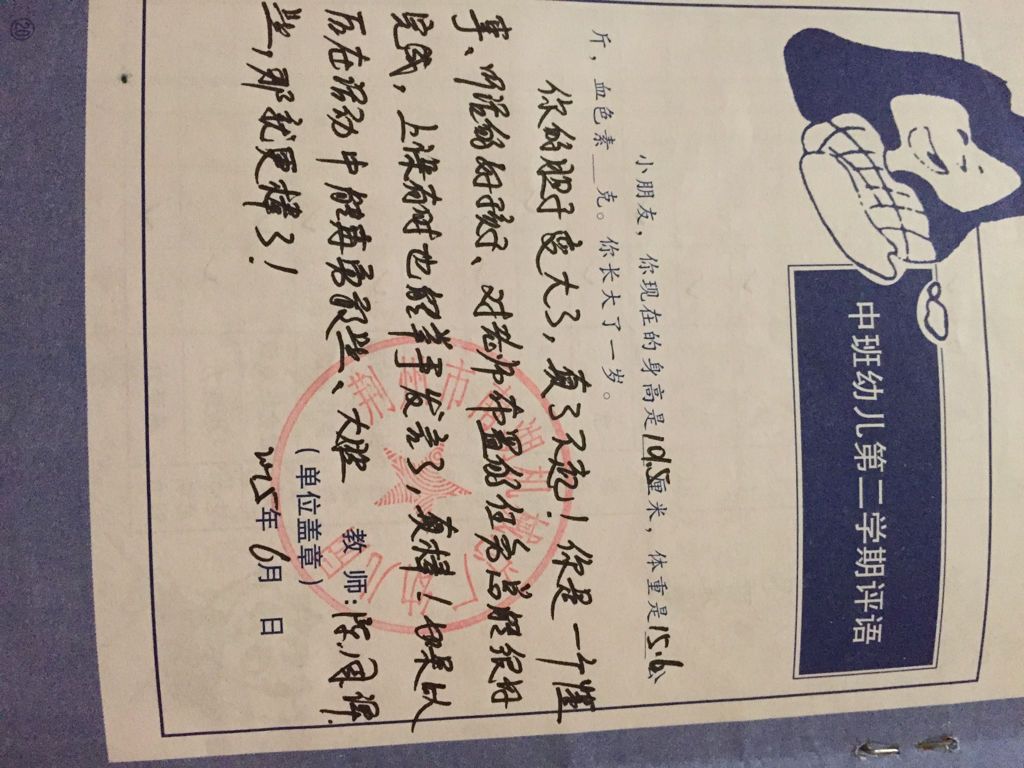 中班幼儿第二学期评语
小朋友，你现在的身高是105厘米，体重是15.6公
斤，血色素__克。你长大了一岁。
你的胆子变大了，真了不起！你是一个懂
事、听话的好孩子、对老师布置的任务总能很好
完成，上课有时也能举手发言了，真棒！如果以
后在活动中能再勇敢些、大胆
些，那就更棒了！
教师：陈
（单位盖章）
年6月 日
20